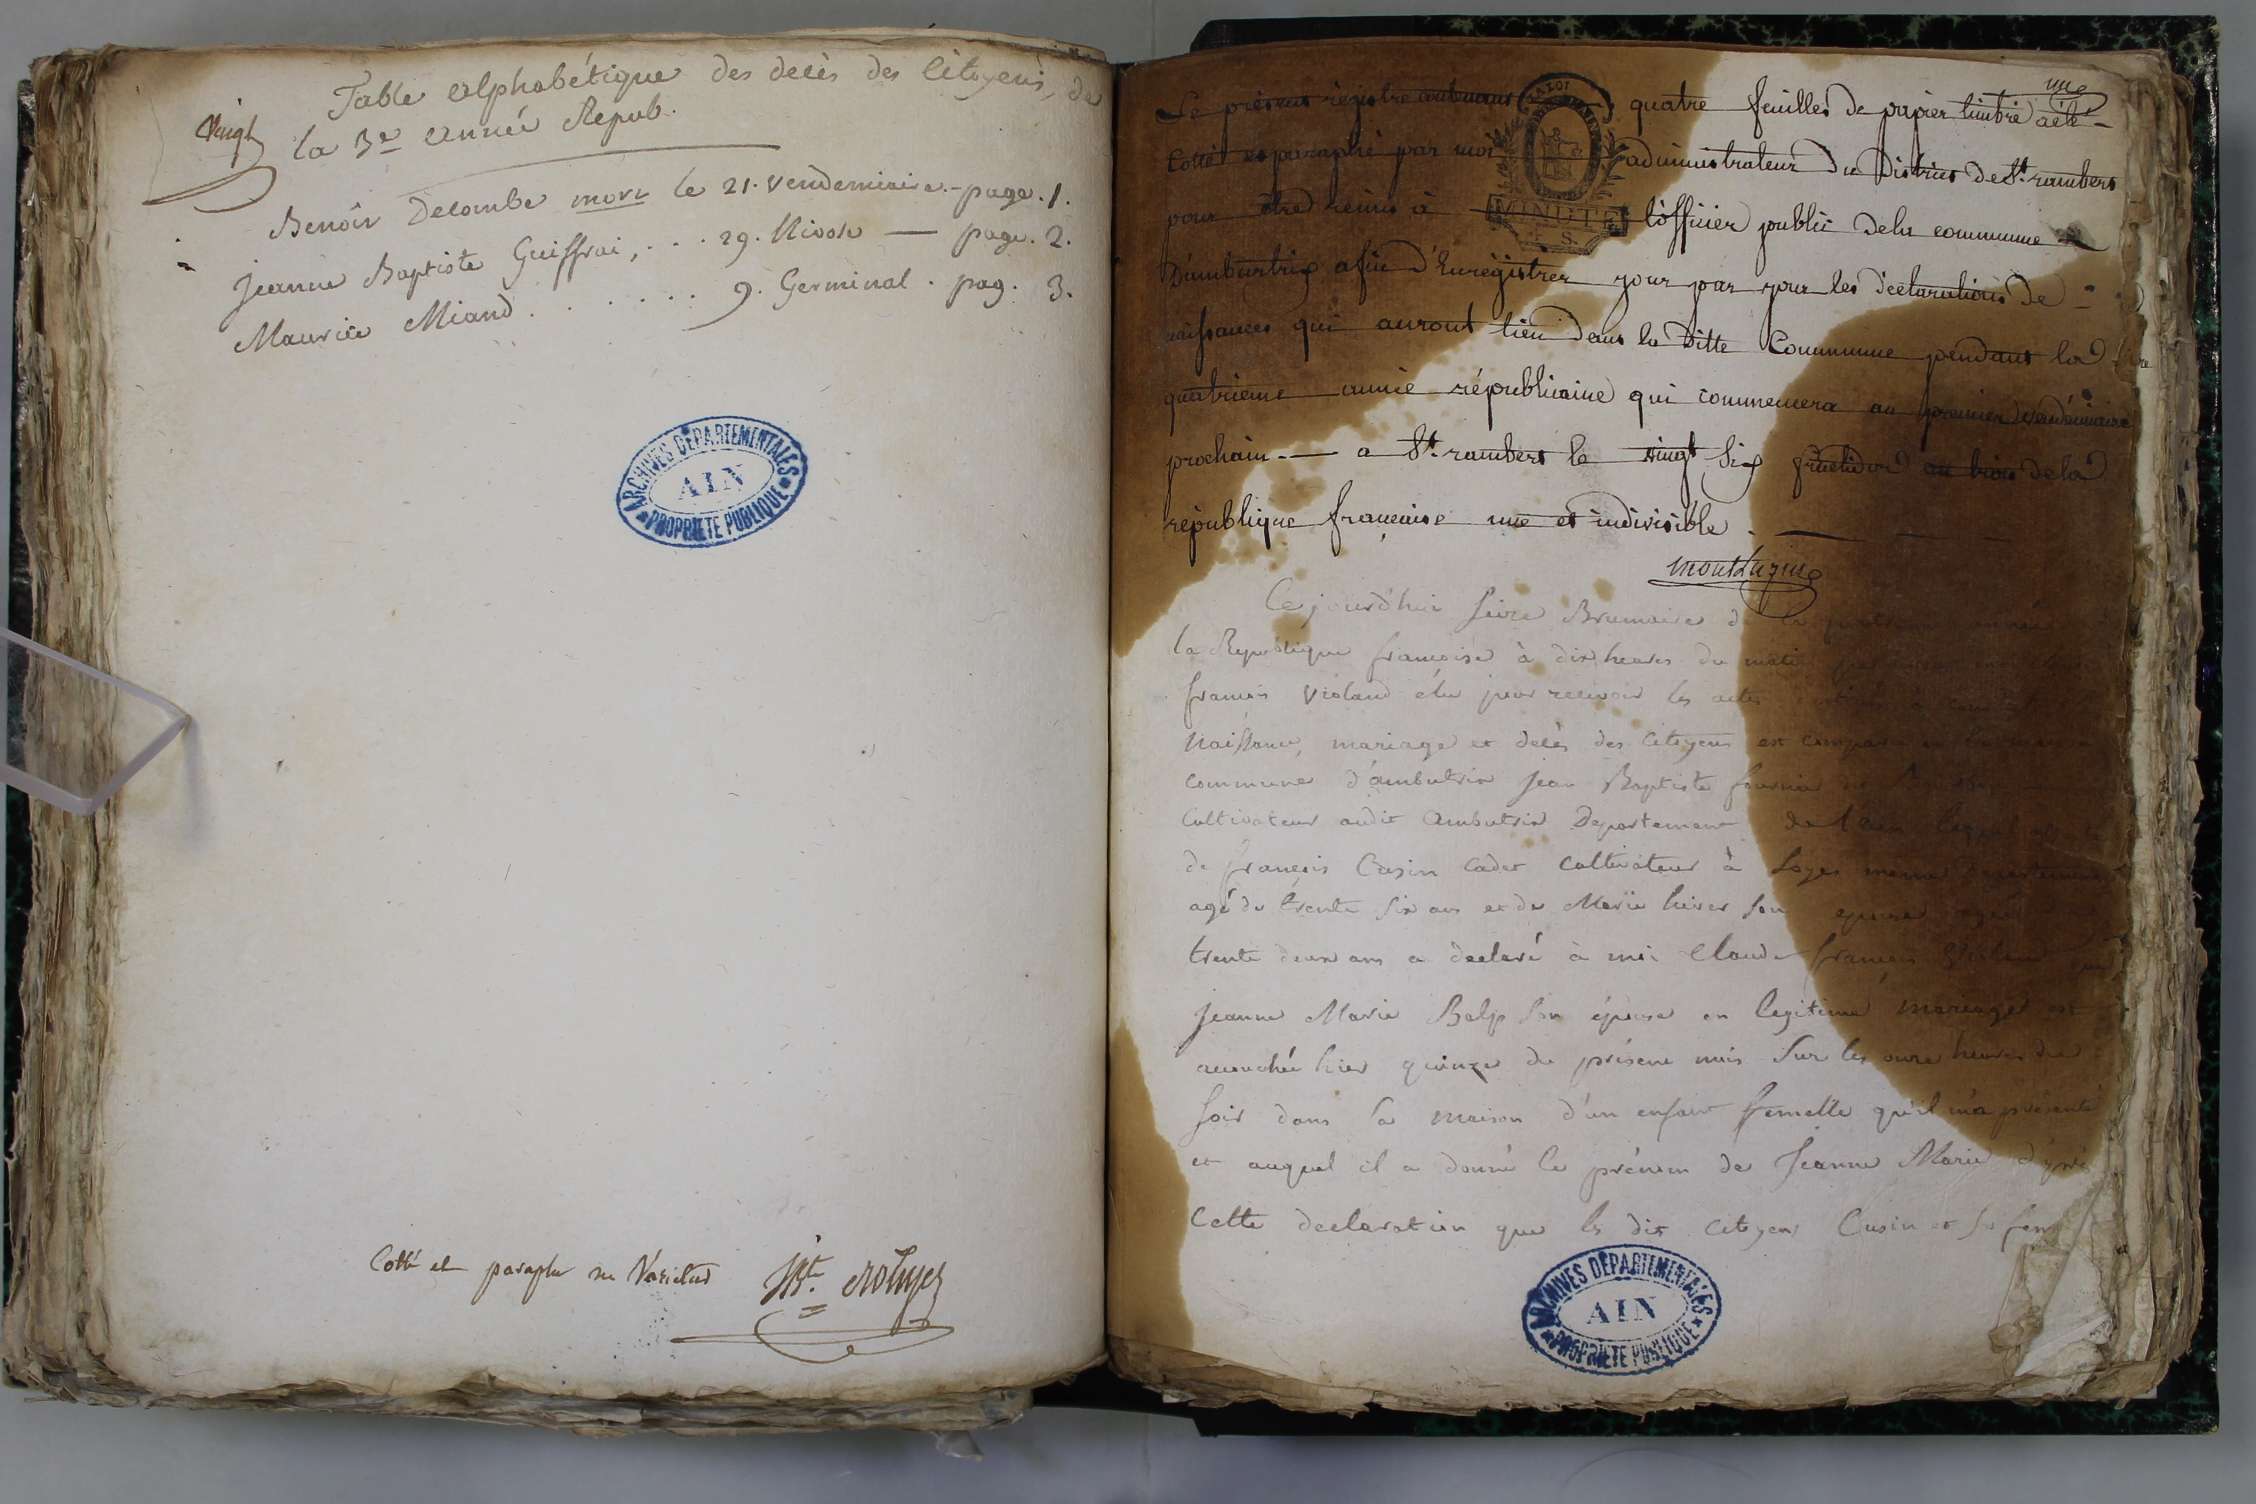 Table alphabétique des decès des Citoyens, de
la 3e année Repub.
Vingt
Benoîr Decombe mort le 21. Vendemiaire. - page. 1.
Jeanne Baptiste Guiffrai, . . . 29. Nivose — page. 2.
Maurice Miand . . . . . . 9. Germinal . pag. 3.
ARCHIVES DÉPARTEMENTALES
AIN
PROPRIÉTÉ PUBLIQUE
Cotté et paraphé ne Varietur
une
Le présent régistre contenant quatre feuilles de papier timbré a été
Cotté et paraphé par moi administrateur du District de St. rambert
pour être remis à l'officier public de la commune
MINUTE
D'ambutrix afin d'Enregistrer jour par jour les déclarations de
naissances qui auront lieu dans la ditte Commune pendant la
quatrieme année républicaine qui commencera au premier Vendémiaire
prochain. — a St. rambert le vingt six fructidor an trois de la
république française une et indivisible. —
Ce jourd'hui seize Brumaire de la quatrieme année
la Republique françoise à dix heures du matin par
françois Violand élu pour recevoir les actes
Naissance, mariage et decès des Citoyens est comparu
commune d'ambutrix Jean Baptiste
Cultivateur audit Ambutrix Departement de l'ain
de françois Cusin cadet cultivateur à Loyes même departement
agé de trente six ans et de Marie hiver son epouse agée
trente deux ans a declaré à moi Claude françois Violand
Jeanne Marie Balp son épouse en legitime mariage est
accouchée hier quinze du présent mois sur les onze heures du
soir dans sa maison d'un enfant femelle qu'il m'a présenté
et auquel il a donné le prénom de Jeanne Marie d'après
Cette declaration que les dit Citoyens Cusin et sa fem
ARCHIVES DÉPARTEMENTALES
AIN
PROPRIÉTÉ PUBLIQUE